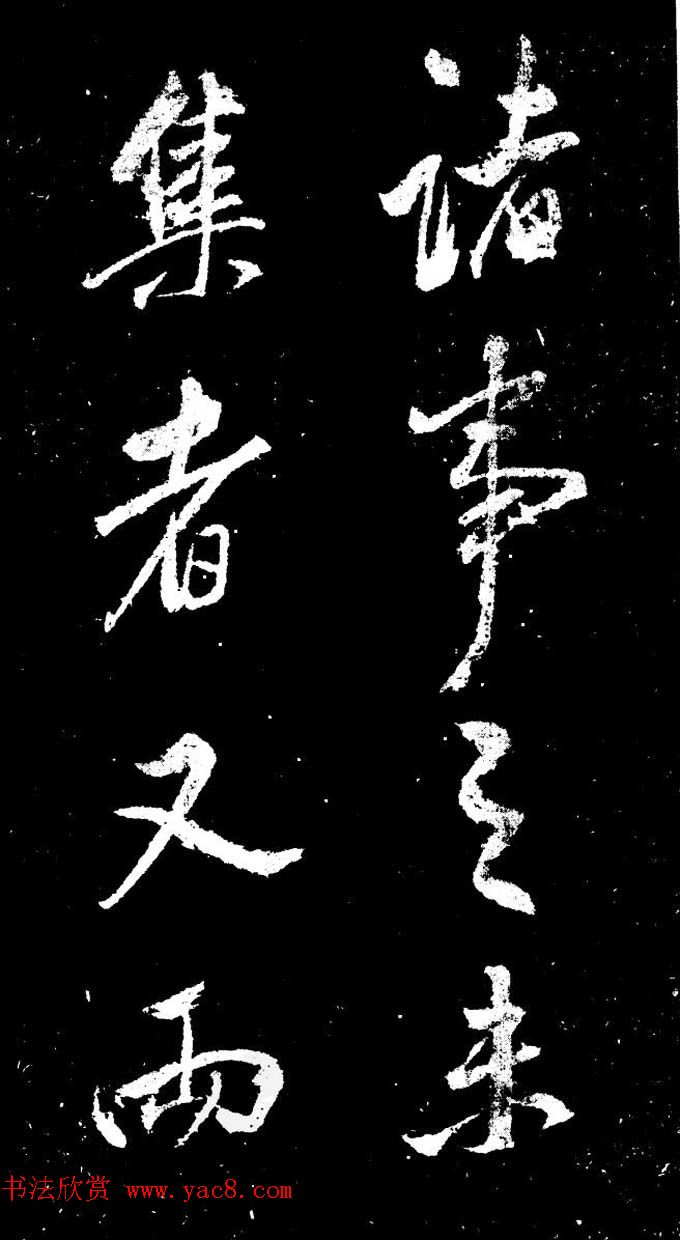 諸事之未
集者又兩
书法欣赏 www.yac8.com